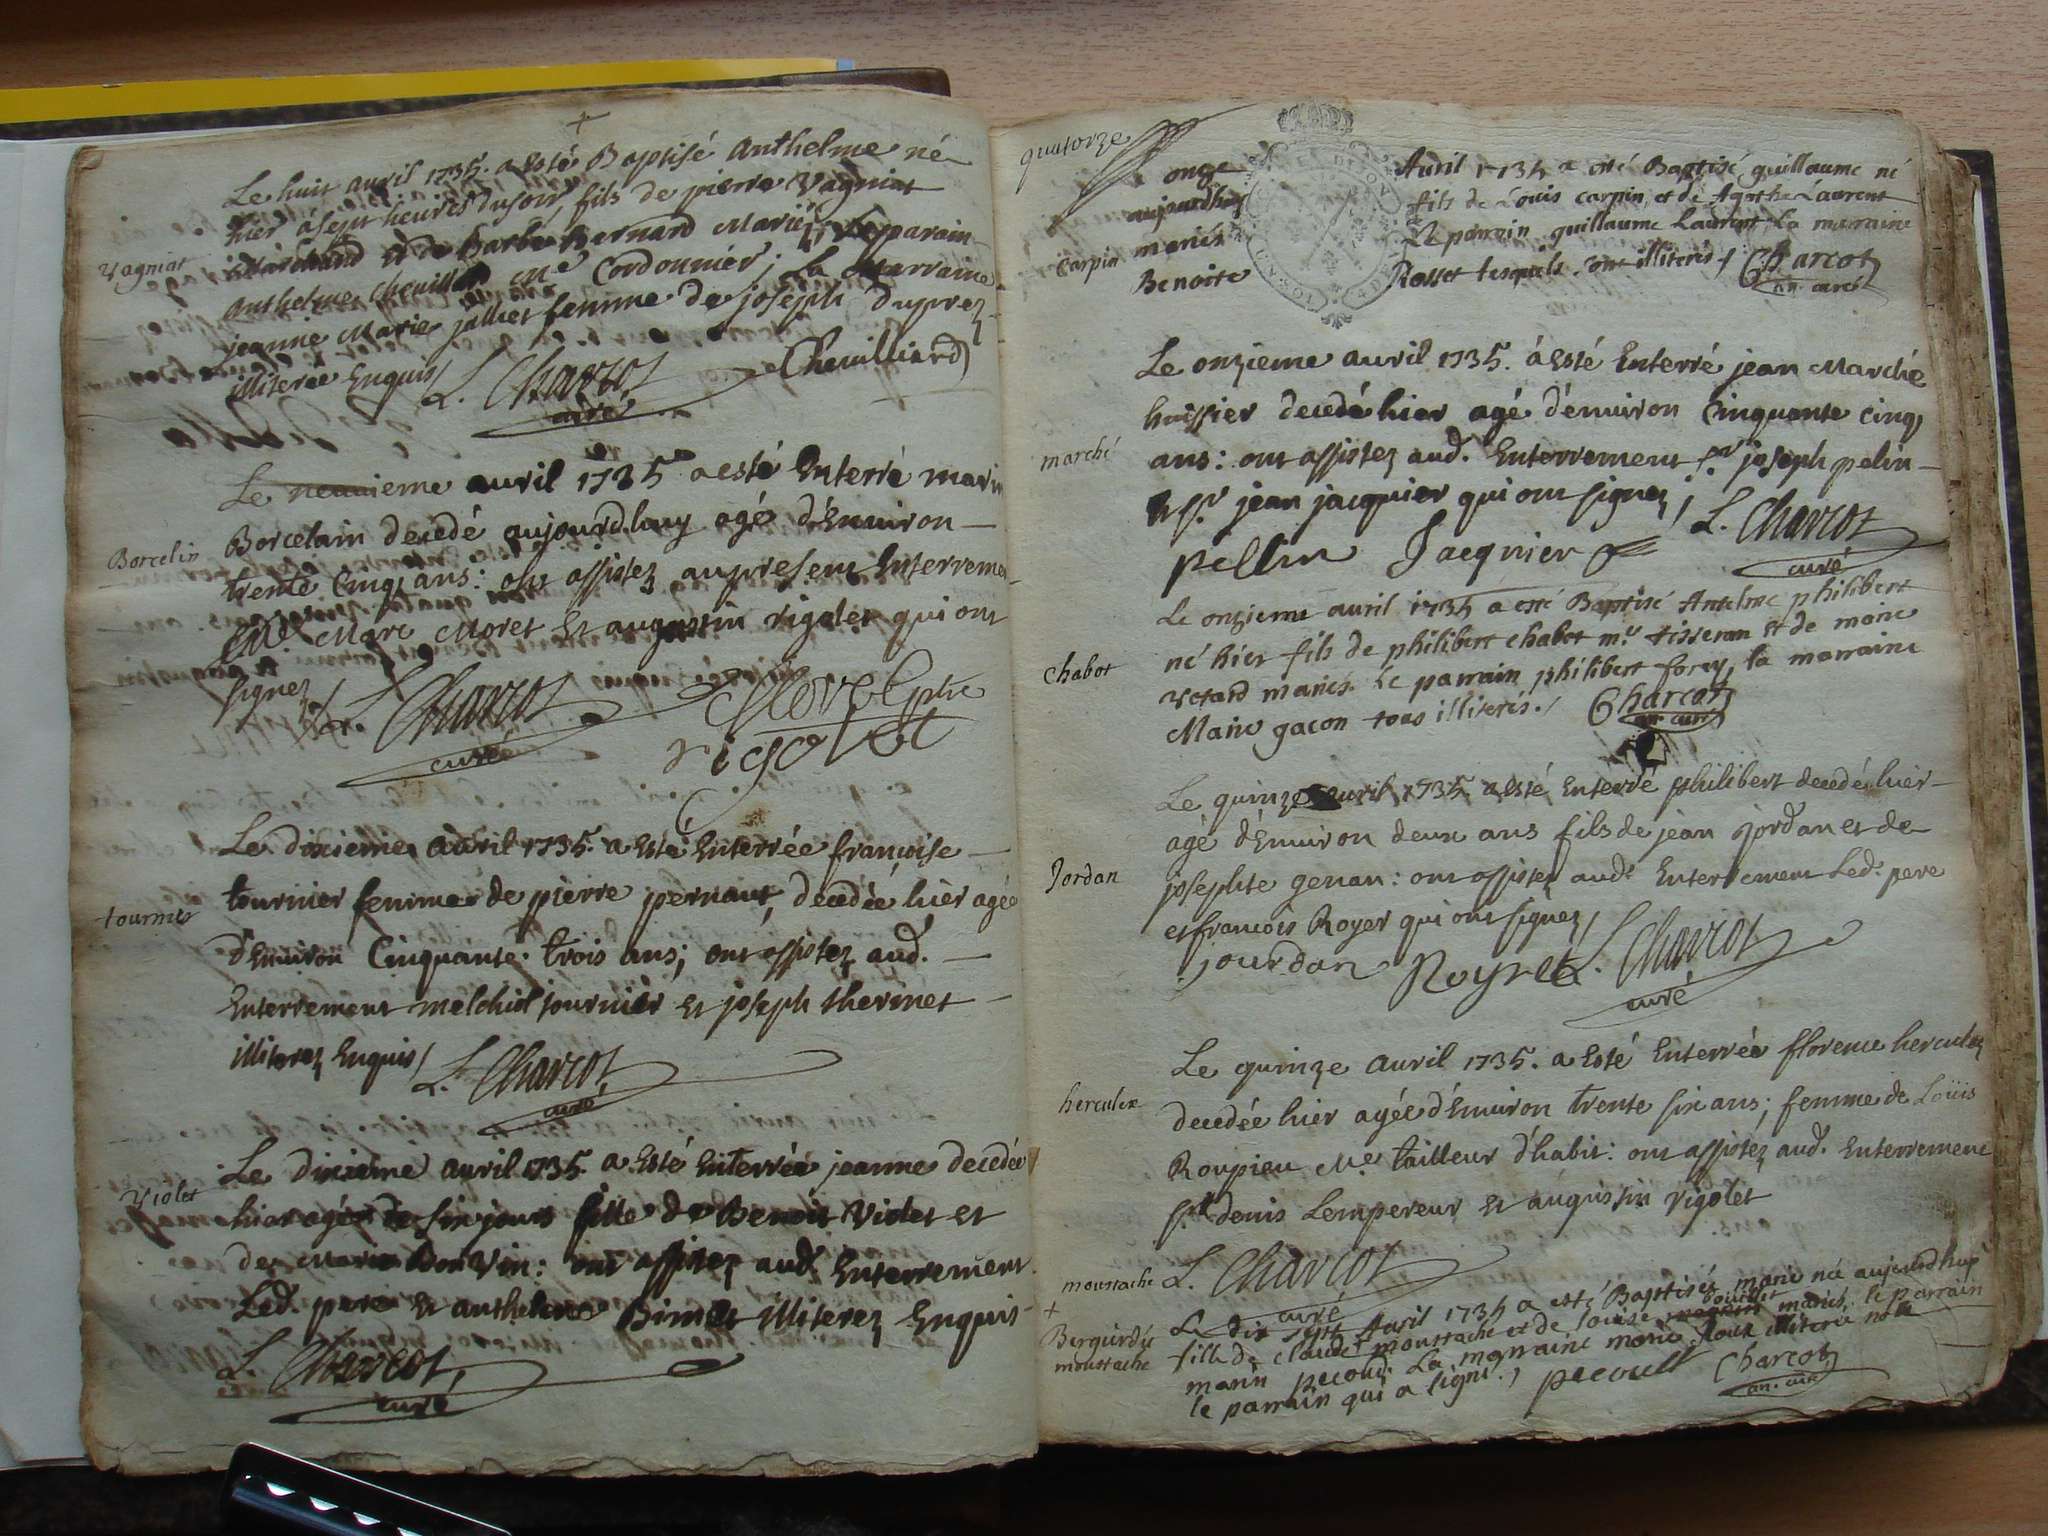 Le huit avril 1735. a esté Baptisé Anthelme né
hier à sept heures du soir fils de pierre Vagniat
Vagniat
Marchand et de Barbe Bernard Mariéz, Le parain
anthelme Cheuilliard me Cordonnier; La Marraine
jeanne Marie jalliet femme de joseph Duprez
illiterée Enquis/ L. Charcot Cheuilliard
curé
Le neuuieme auril 1735 a esté Enterré marin
Borcelin
Borcelain decedé aujourdhuy agé d'Enuiron
trente Cinq ans: ont assistez au present Enterrement
Marc Moret et augustin rigolet qui ont
signez / L. Charcot
rigolet
curé
Le dixieme auril 1735. a Esté Enterrée françoise
tournier
tournier femme de pierre pernaut, decedée hier agée
d'Enuiron Cinquante trois ans; ont assistez aud.
Enterrement melchiol tournier et joseph thermet
illiterez Enquis/ L. Charcot
curé
Le dixieme auril 1735. a Esté Enterrée jeanne decedée
Violet
hier agée de six jours fille de Benoit Violet et
de Marie Bon Vin: ont assistez aud. Enterrement
Led. pere et anthelme Binet illiterez Enquis
L. Charcot
curé
quatorze
onze Auril 1735 a eté Baptisé guillaume né
aujourdhuy fils de Louis carpin et de Agathe Laurent
carpin
mariés Le parrain guillaume Laurent La marraine
Benoite Rosset lesquels sont illiterés / Charcot
an. curé
Le onzieme auril 1735. à Esté Enterré jean Marché
huissier decedé hier agé d'enuiron Cinquante cinq
marché
ans: ont assistez aud. Enterrement sr joseph pelin
et sr. jean jacquier qui ont signez; L. Charcot
pellin Jacquier
curé
Le onzieme auril 1735 a eté Baptisé Antelme philibert
né hier fils de philibert chabot mr tisseran et de marie
chabot
Vetard mariés. Le parrain philibert forey, la marraine
Marie gacon tous illiterés./ Charcot
an. curé
Le quinze auril 1735 a esté Enterré philibert decedé hier
agé d'Enuiron deux ans fils de jean jordan et de
Jordan
josephte genan: ont assistez aud. Enterrement Led. pere
et francois Royer qui ont signez/
jourdan L. Charcot
curé
Le quinze auril 1735. a Esté Enterrée florence herculez
herculez
decedée hier agée d'Enuiron trente six ans; femme de Loüis
Roupieu me tailleur d'habit: ont assistéz aud. Enterrement
sr denis Lempereur et augustin rigolet
L. Charcot
curé
moustache
+
moustache
Le dix sept Auril 1735 a esté Baptisés marie née aujourdhuy
fille de claude moustache et de louise mariés. le parrain
marin pecoud. La marraine marie Roux illiterée non
le parrain qui a signé./ pecoult Charcot
an. curé